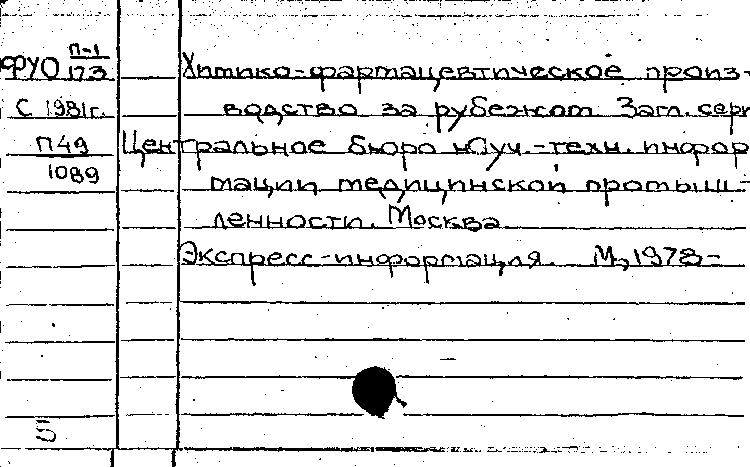 ФУО П-1
173
Химико-фармацевтическое произ-
с 1981г.
водство за рубежом. Загл. сер
П49
Центральное бюро науч.-техн. инфор
1089
мации медицинской промыш-
ленности. Москва
Экспресс-информация. М., 1978-
5